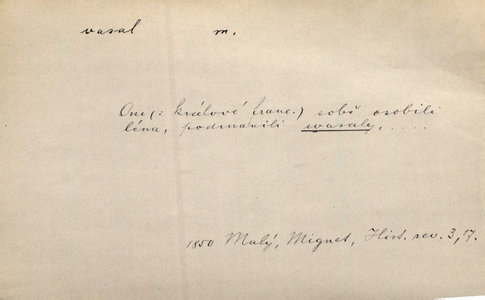 vasal m.
Oni (: králové franc.) sobě osobili
léna, podmanili wasaly, ....
1850 Malý, Mignet, Hist. rev. 3, 17.